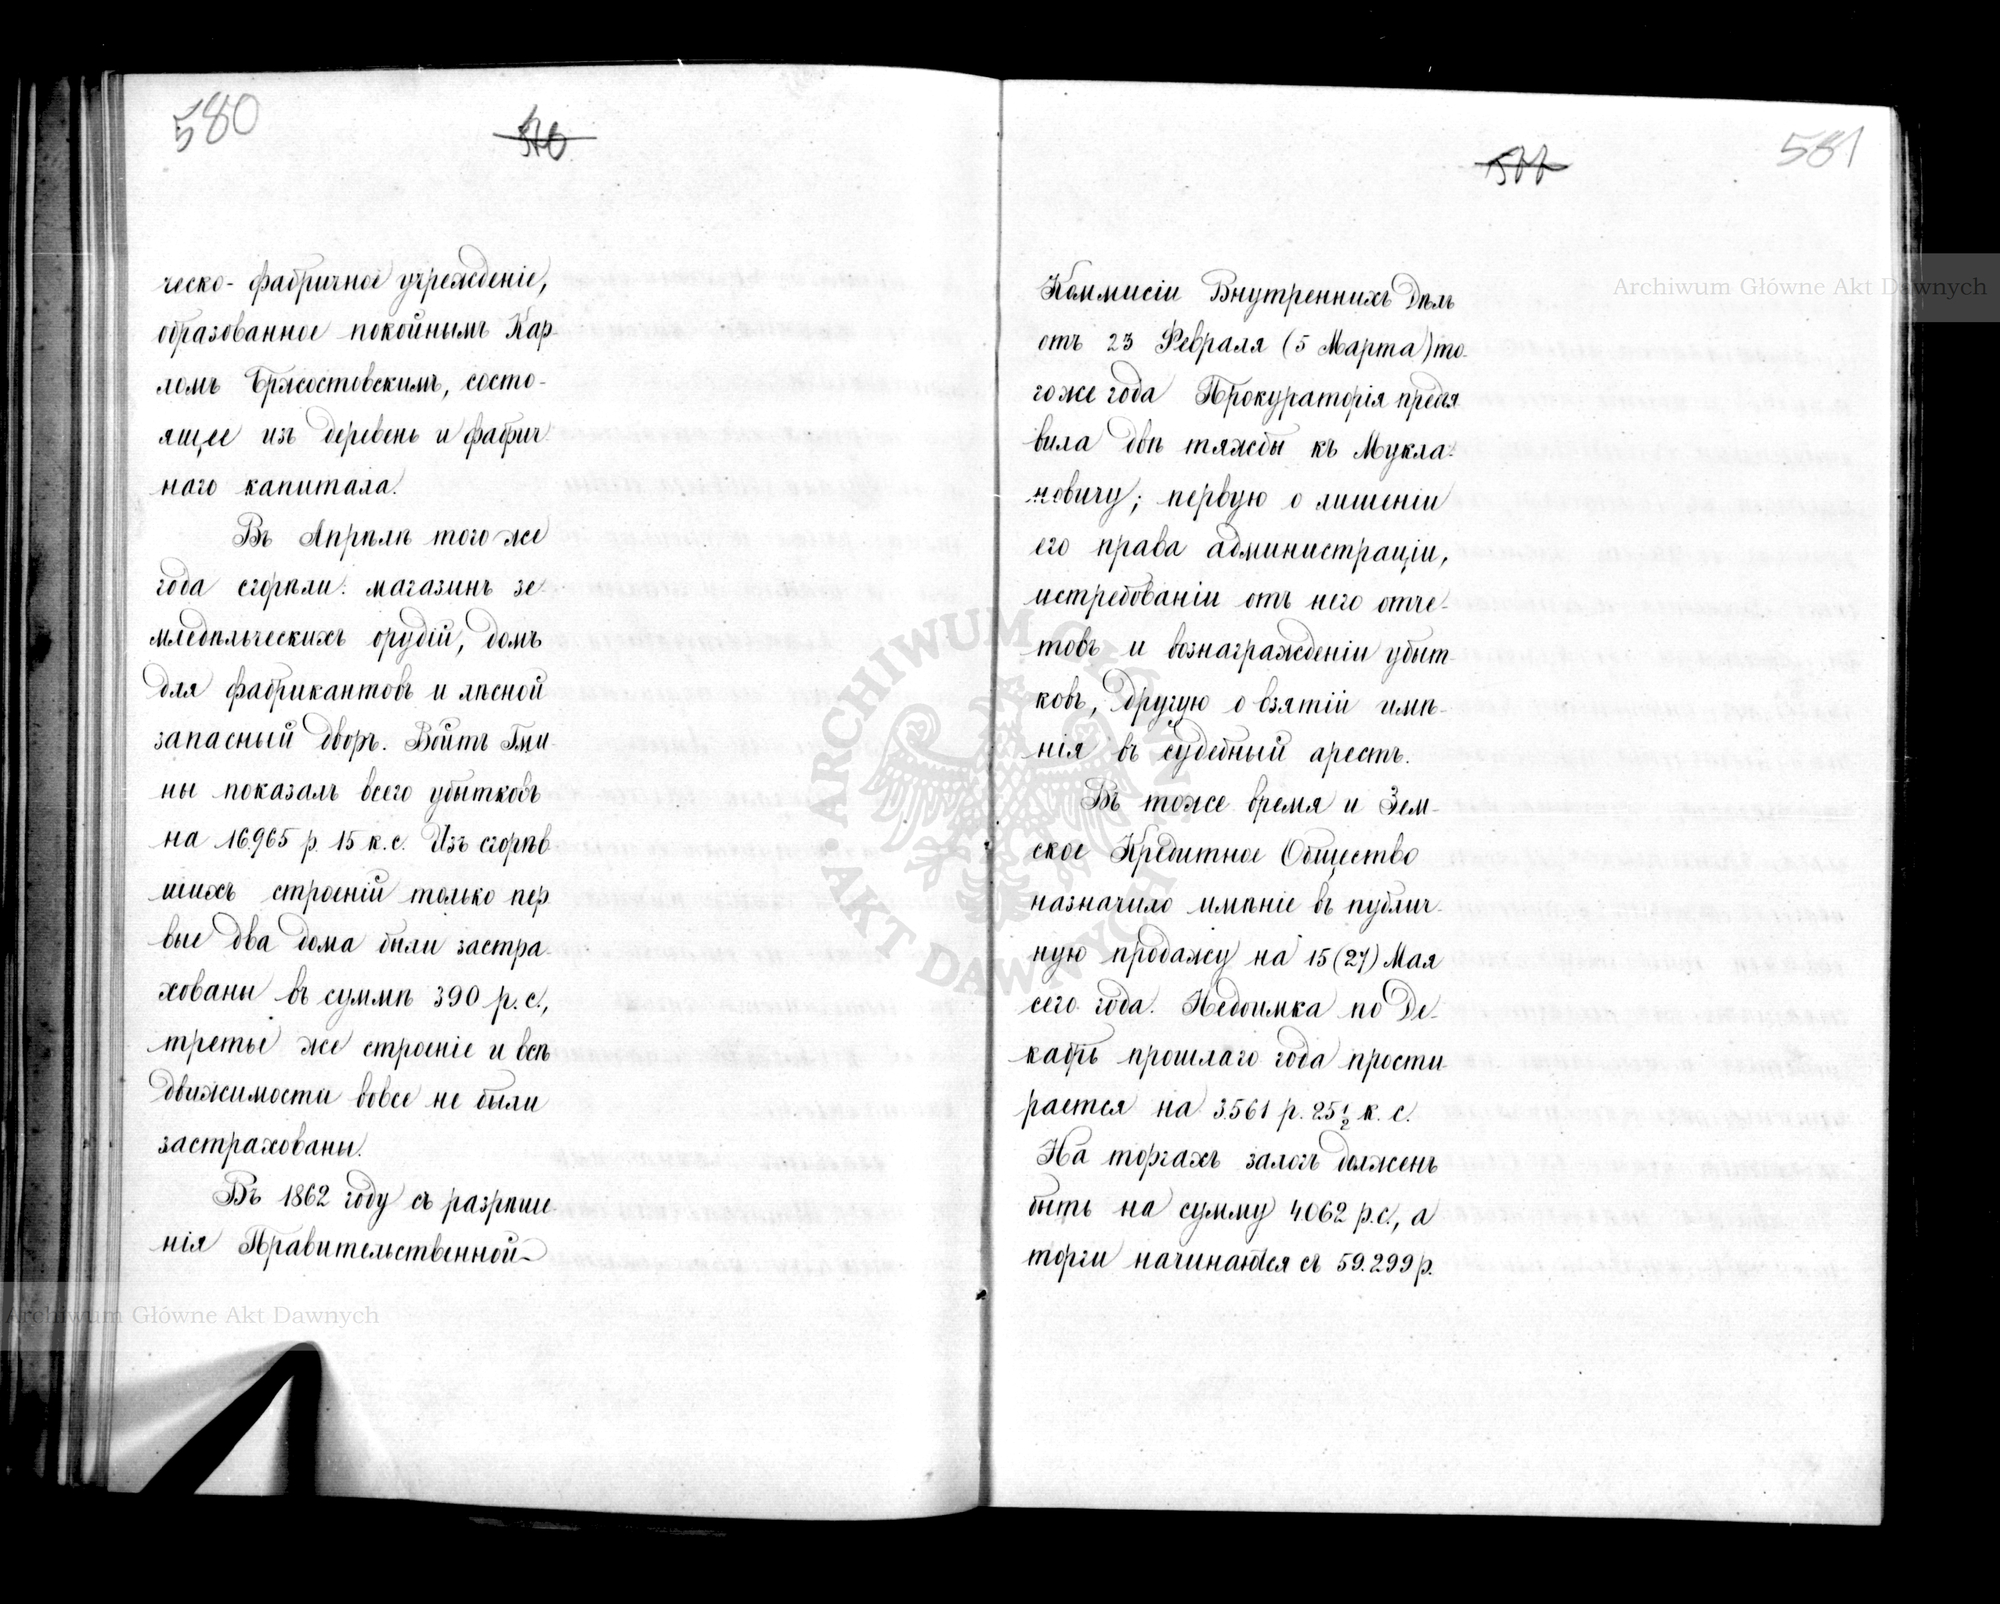 580
576
ческо-фабричное учрежденіе,
образованное покойнымъ Кар-
ломъ Бржостовскимъ, состо-
ящее изъ деревень и фабрич-
наго капитала.
Въ Апрѣлѣ того же
года сгорѣли: магазинъ зе-
мледѣльческихъ орудій, домъ
для фабрикантовъ и лѣсной
запасный дворъ. Войтъ Гми-
ны показалъ всего убытковъ
на 16.965 р. 15 к. с. Изъ сгорѣв-
шихъ строеній только пер-
вые два дома были застра-
хованы въ суммѣ 390 р. с.,
третье же строеніе и всѣ
движимости вовсе не были
застрахованы.
Въ 1862 году съ разрѣше-
нія Правительственной
581
577
Коммисіи Внутреннихъ Дѣлъ
отъ 23 Февраля (5 Марта) то-
гоже года Прокураторія предъя
вила двѣ тяжбы къ Мукла-
новичу; первую о лишеніи
его права администраціи,
истребованіи отъ него отче-
товъ и вознагражденіи убыт-
ковъ, другую о взятіи имѣ-
нія въ судебный арестъ.
Въ тоже время и Зем-
ское Кредитное Общество
назначило имѣніе въ публич-
ную продажу на 15 (27) Мая
сего года. Недоимка по Де-
кабрь прошлаго года прости-
рается на 3.561 р. 25 1/2 к. с.
На торгахъ залогъ долженъ
быть на сумму 4062 р. с., а
торги начинаются съ 59.299 р.
Archiwum Główne Akt Dawnych
Archiwum Główne Akt Dawnych
ARCHIWUM GŁÓWNE
AKT DAWNYCH